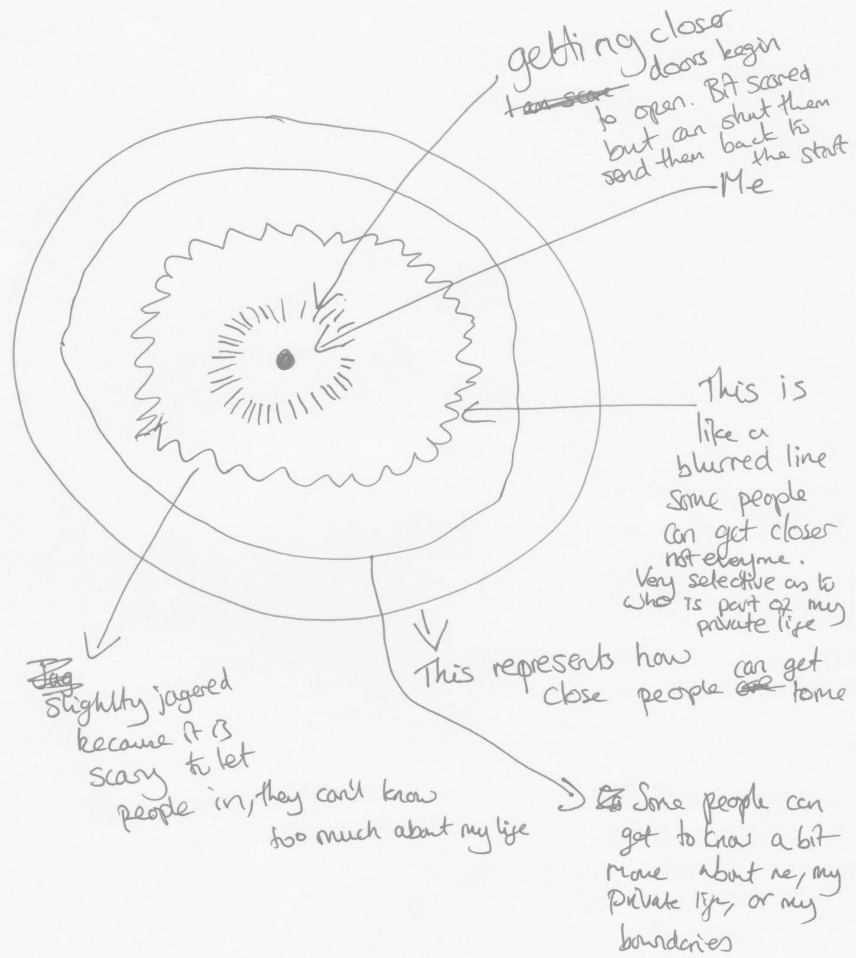 getting closer
I am scare doors begin
to open. Bit scared
but can shut them
send them back to
the start
Me
This is
like a
blurred line
some people
can get closer
not everyone.
Very selective as to
who is part of my
private life
This represents how
close people can get
to me
Jag
Slighlty jagered
because it is
scary to let
people in, they can't know
too much about my life
Some people can
get to know a bit
more about me, my
private life, or my
boundaries